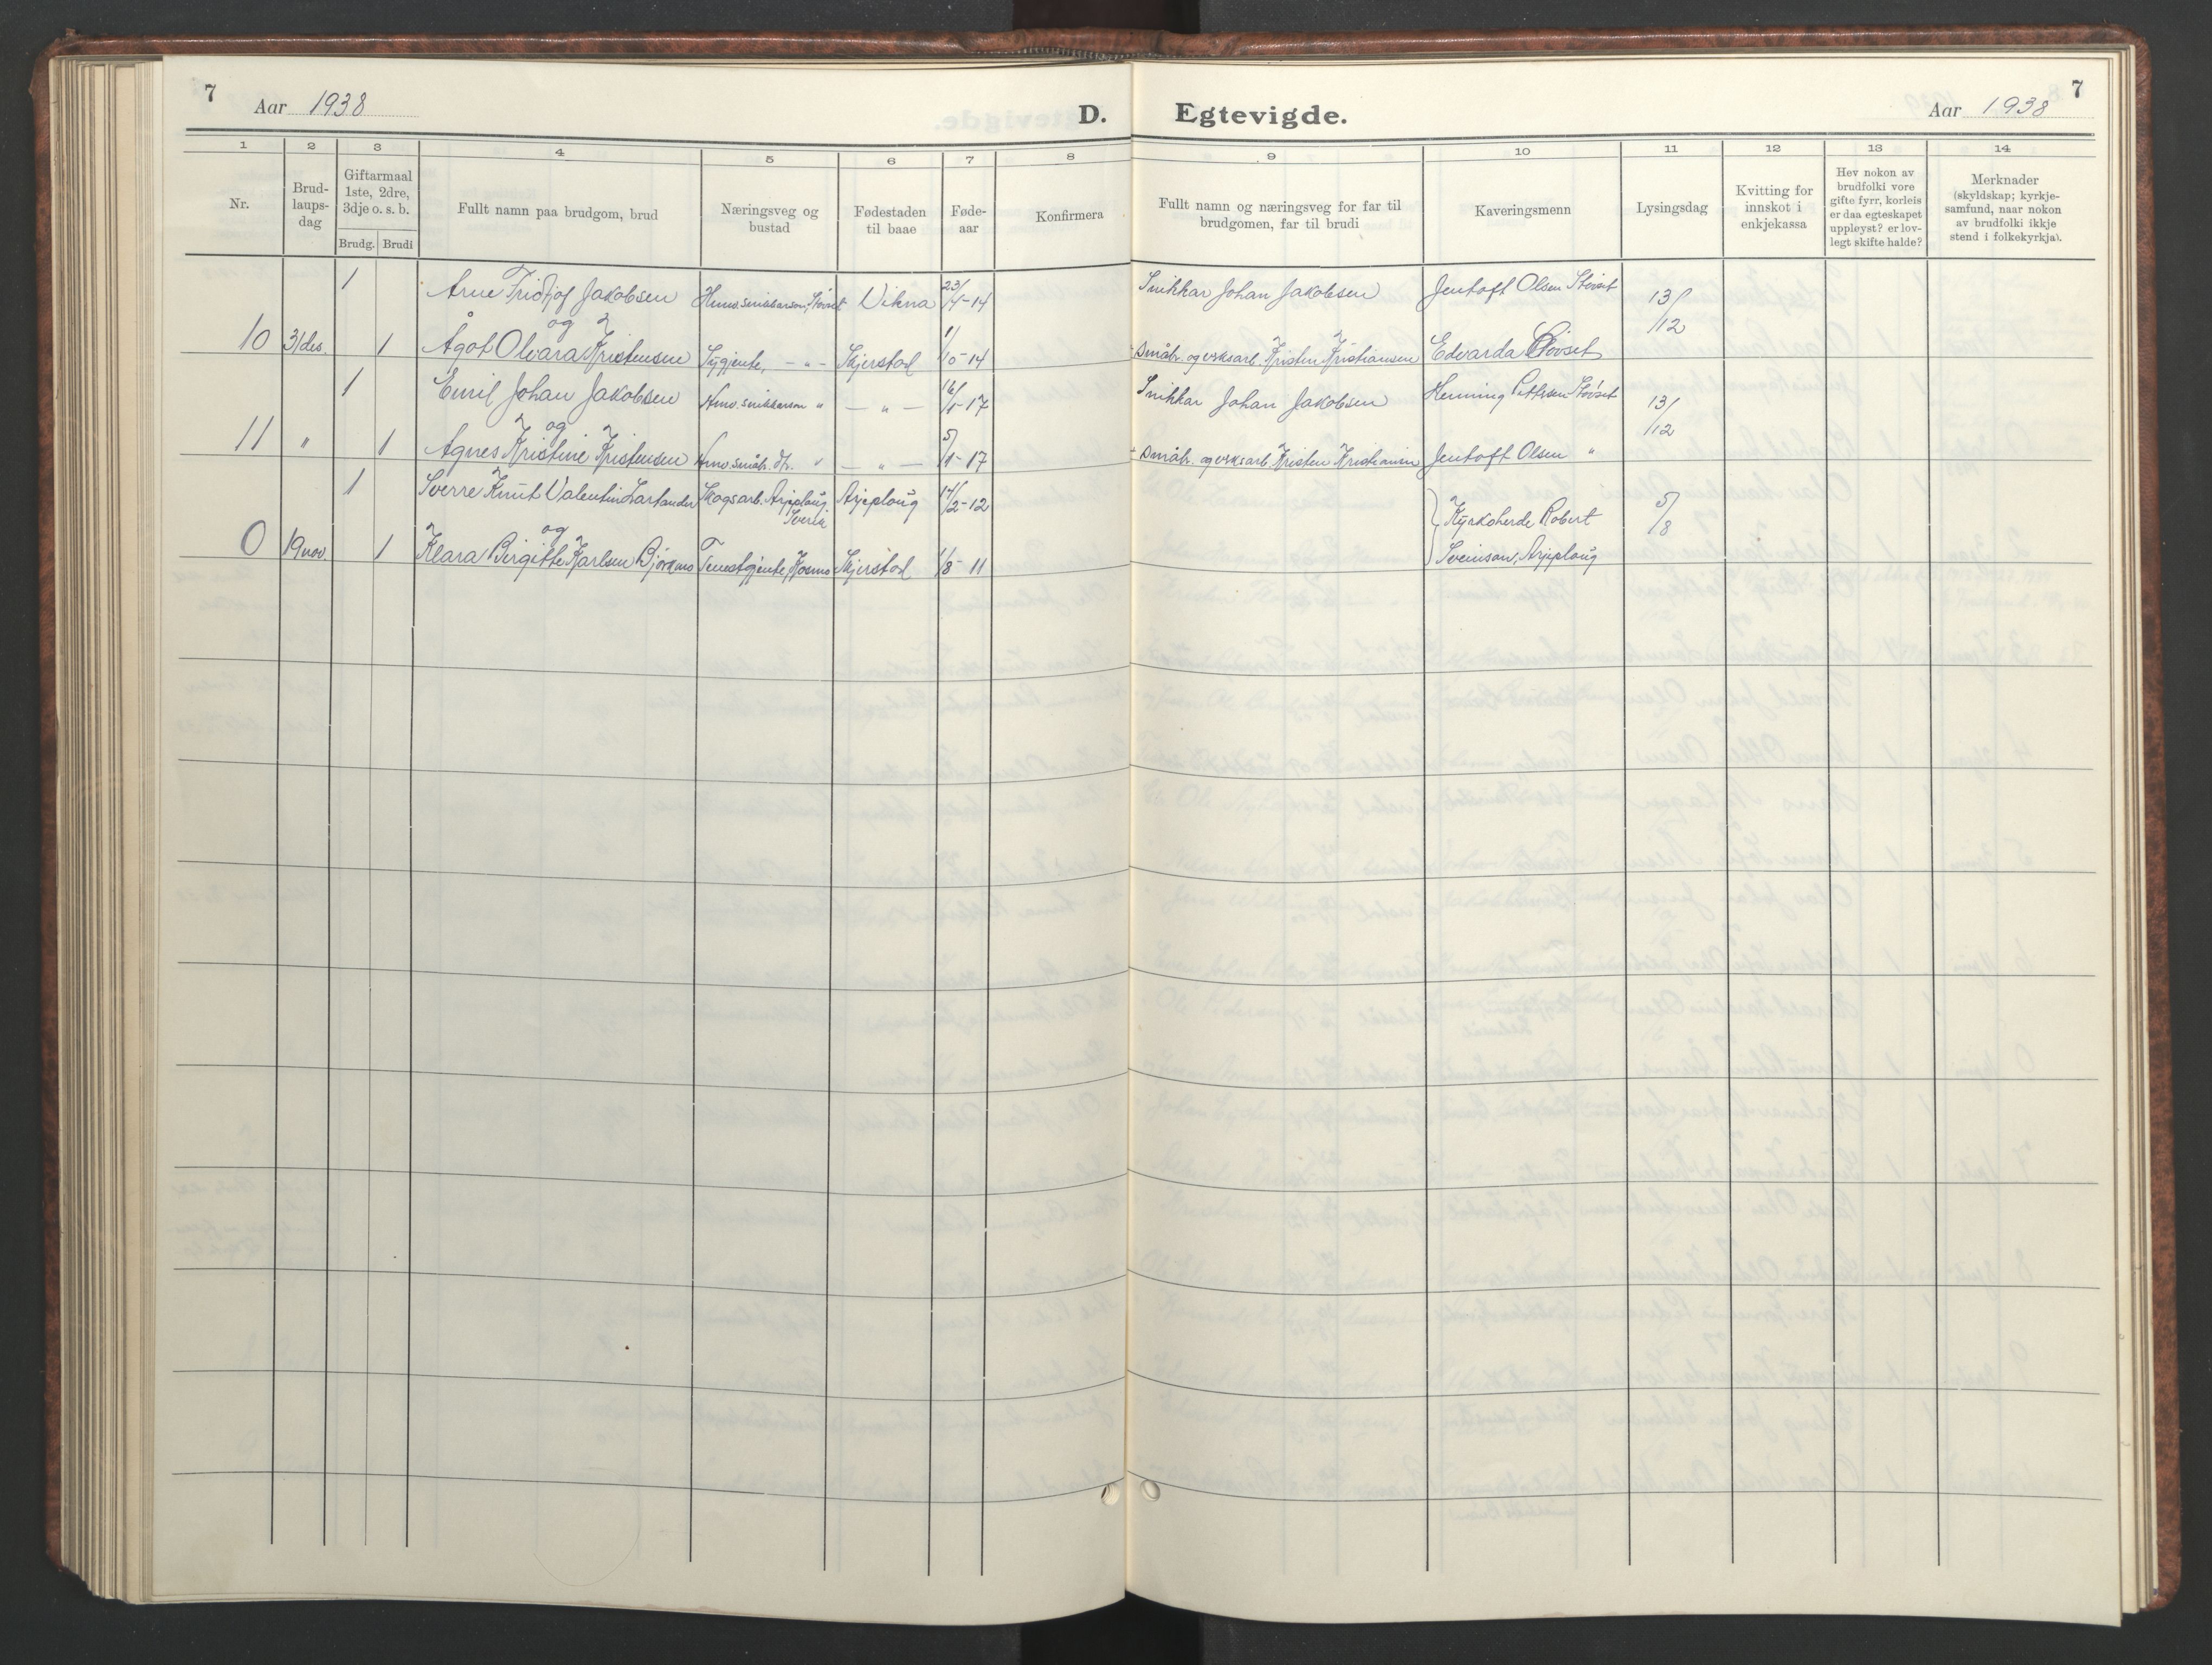 7
Aar 1938
D.
Egtevigde.
Aar 1938
7
1 2 3 4 5 6 7 8 9 10 11 12 13 14
Nr.
Brud-
laups-
dag
Giftarmaal
1ste, 2dre,
3dje o. s. b.
Brudg. Brudi
Fullt namn paa brudgom, brud
Næringsveg og
bustad
Fødestaden
til baae
Føde-
aar
Konfirmera
Fullt namn og næringsveg for far til
brudgomen, far til brudi
Kaveringsmenn
Lysingsdag
Kvitting for
innskot i
enkjekassa
Hev nokon av
brudfolki vore
gifte fyrr, korleis
er daa egteskapet
uppløyst? er lov-
legt skifte halde?
Merknader
(skyldskap; kyrkje-
samfund, naar nokon
av brudfolki ikkje
stend i folkekyrkja).
1 Arne Fridtjof Jakobsen Støvset Vikna 23/4-14 Snikkar Johan Jakobsen Jentoft Olsen Støvset 13/12
og
10 31/des. 1 Ågot Olvara Kristensen Sygjente, — „ — Skjerstad 1/10-14 småbr. og Kristen Kristiansen Edvarda Støvset
1 Emil Johan Jakobsen snikkarson „ — „ — 16/1-17 Snikkar Johan Jakobsen Henning Pettersen Støvset 13/12
og
11 „ 1 Agnes Kristine Kristensen småbr. dtr. „ — „ — 5/1-17 småbr. og Kristen Kristiansen Jentoft Olsen „
1 Sverre Knut Valentin Skogsarb. Arjeploug Sveria Arjeploug 14/2-12 Kyrkoherde Robert 5/8
og
0 19 nov. 1 Klara Birgitte Karlsen Bjørkmo Tenestgjente, Kosmo Skjerstad 1/8-11 Svenson, Arjeploug